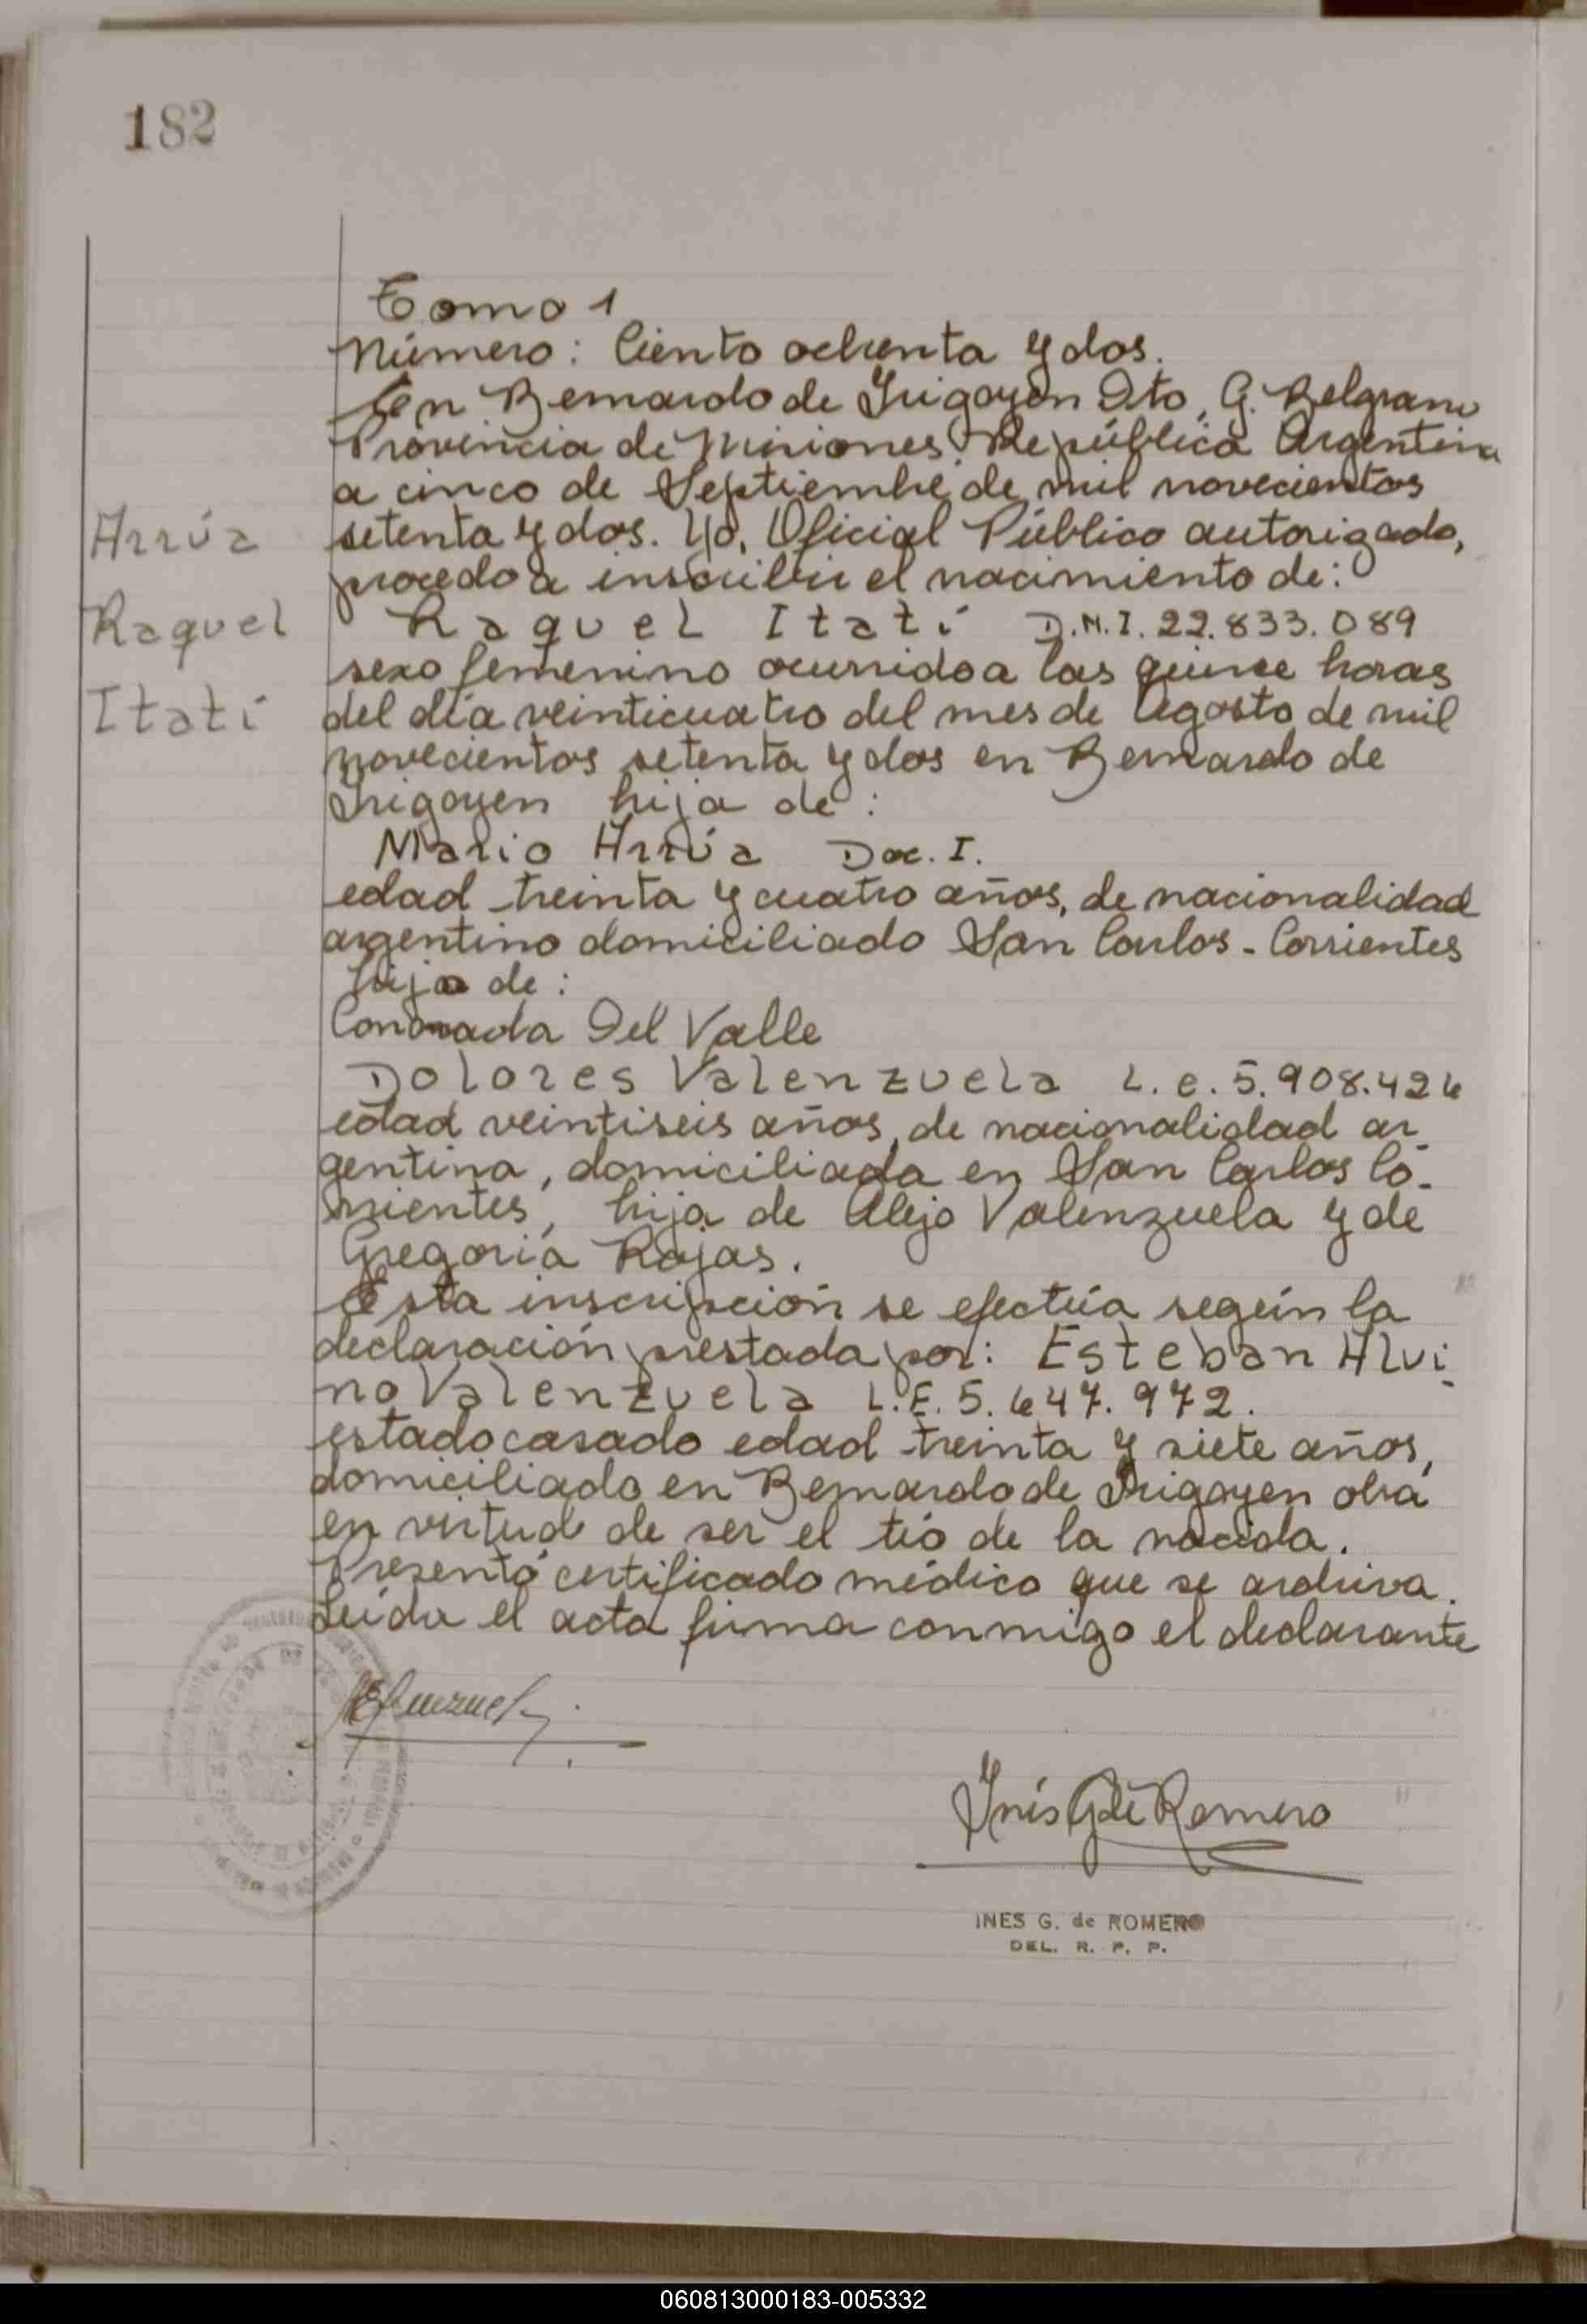 182
Tomo 1
Número: Ciento ochenta y dos.
En Bernardo de Irigoyen Dto, G. Belgrano
Provincia de Misiones República Argentina
a cinco de Septiembre de mil novecientos
setenta y dos. Yo, Oficial Público autorizado,
procedo a inscribir el nacimiento de:
Arrúa
Raquel
Itatí
Raquel Itatí D.N.I. 22.833.089
sexo femenino ocurrido a las quince horas
del día veinticuatro del mes de Agosto de mil
novecientos setenta y dos en Bernardo de
Irigoyen hija de:
Mario Arrúa Doc. I.
edad treinta y cuatro años, de nacionalidad
argentino domiciliado San Carlos - Corrientes
hijo de:
Del Valle
Dolores Valenzuela L.e. 5.908.426
edad veintiseis años, de nacionalidad ar
gentina, domiciliada en San Carlos Co-
rrientes, hija de Alejo Valenzuela y de
Gregoria Rojas.
Esta inscripción se efectúa según la
declaración prestada por: Esteban Alvi
no Valenzuela L.E. 5.647.972.
estado casado edad treinta y siete años,
domiciliado en Bernardo de Irigoyen obra
en virtud de ser el tío de la nacida.
Presentó certificado médico que se archiva.
Leída el acta firma conmigo el declarante
Inés G de Romero
INES G. de ROMERO
DEL. R. P. P.
060813000183-005332